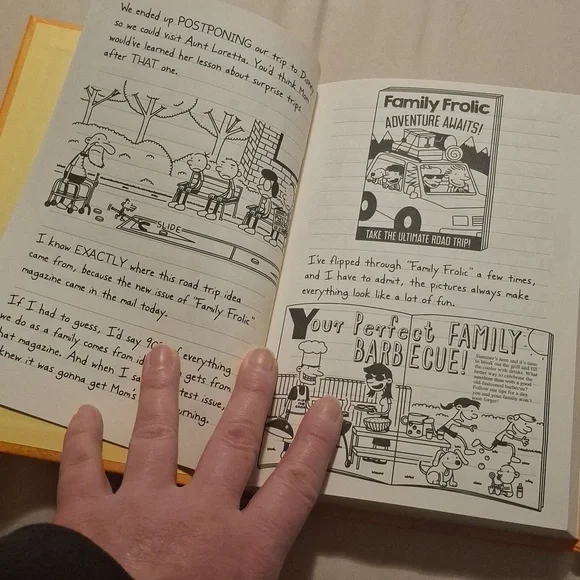 We ended up POSTPONING our trip to Disney
so we could visit Aunt Loretta. You'd think Mom
would've learned her lesson about surprise trips
after THAT one.
SLIDE
I know EXACTLY where this road trip idea
came from, because the new issue of "Family Frolic"
magazine came in the mail today.
If I had to guess, I'd say 90% everything
we do as a family comes from gets from
that magazine. And when I test issue,
knew it was gonna get Mom's urning.
Family Frolic
ADVENTURE AWAITS!
TAKE THE ULTIMATE ROAD TRIP!
I've flipped through "Family Frolic" a few times,
and I have to admit, the pictures always make
everything look like a lot of fun.
Your Perfect FAMILY
BARBECUE!
Summer's here and it's time
to break out the grill and fill
the cooler with drinks. What
better way to celebrate the
sunshine than with a good
old-fashioned barbecue?
Follow our tips for a day
you and your family won't
soon forget!